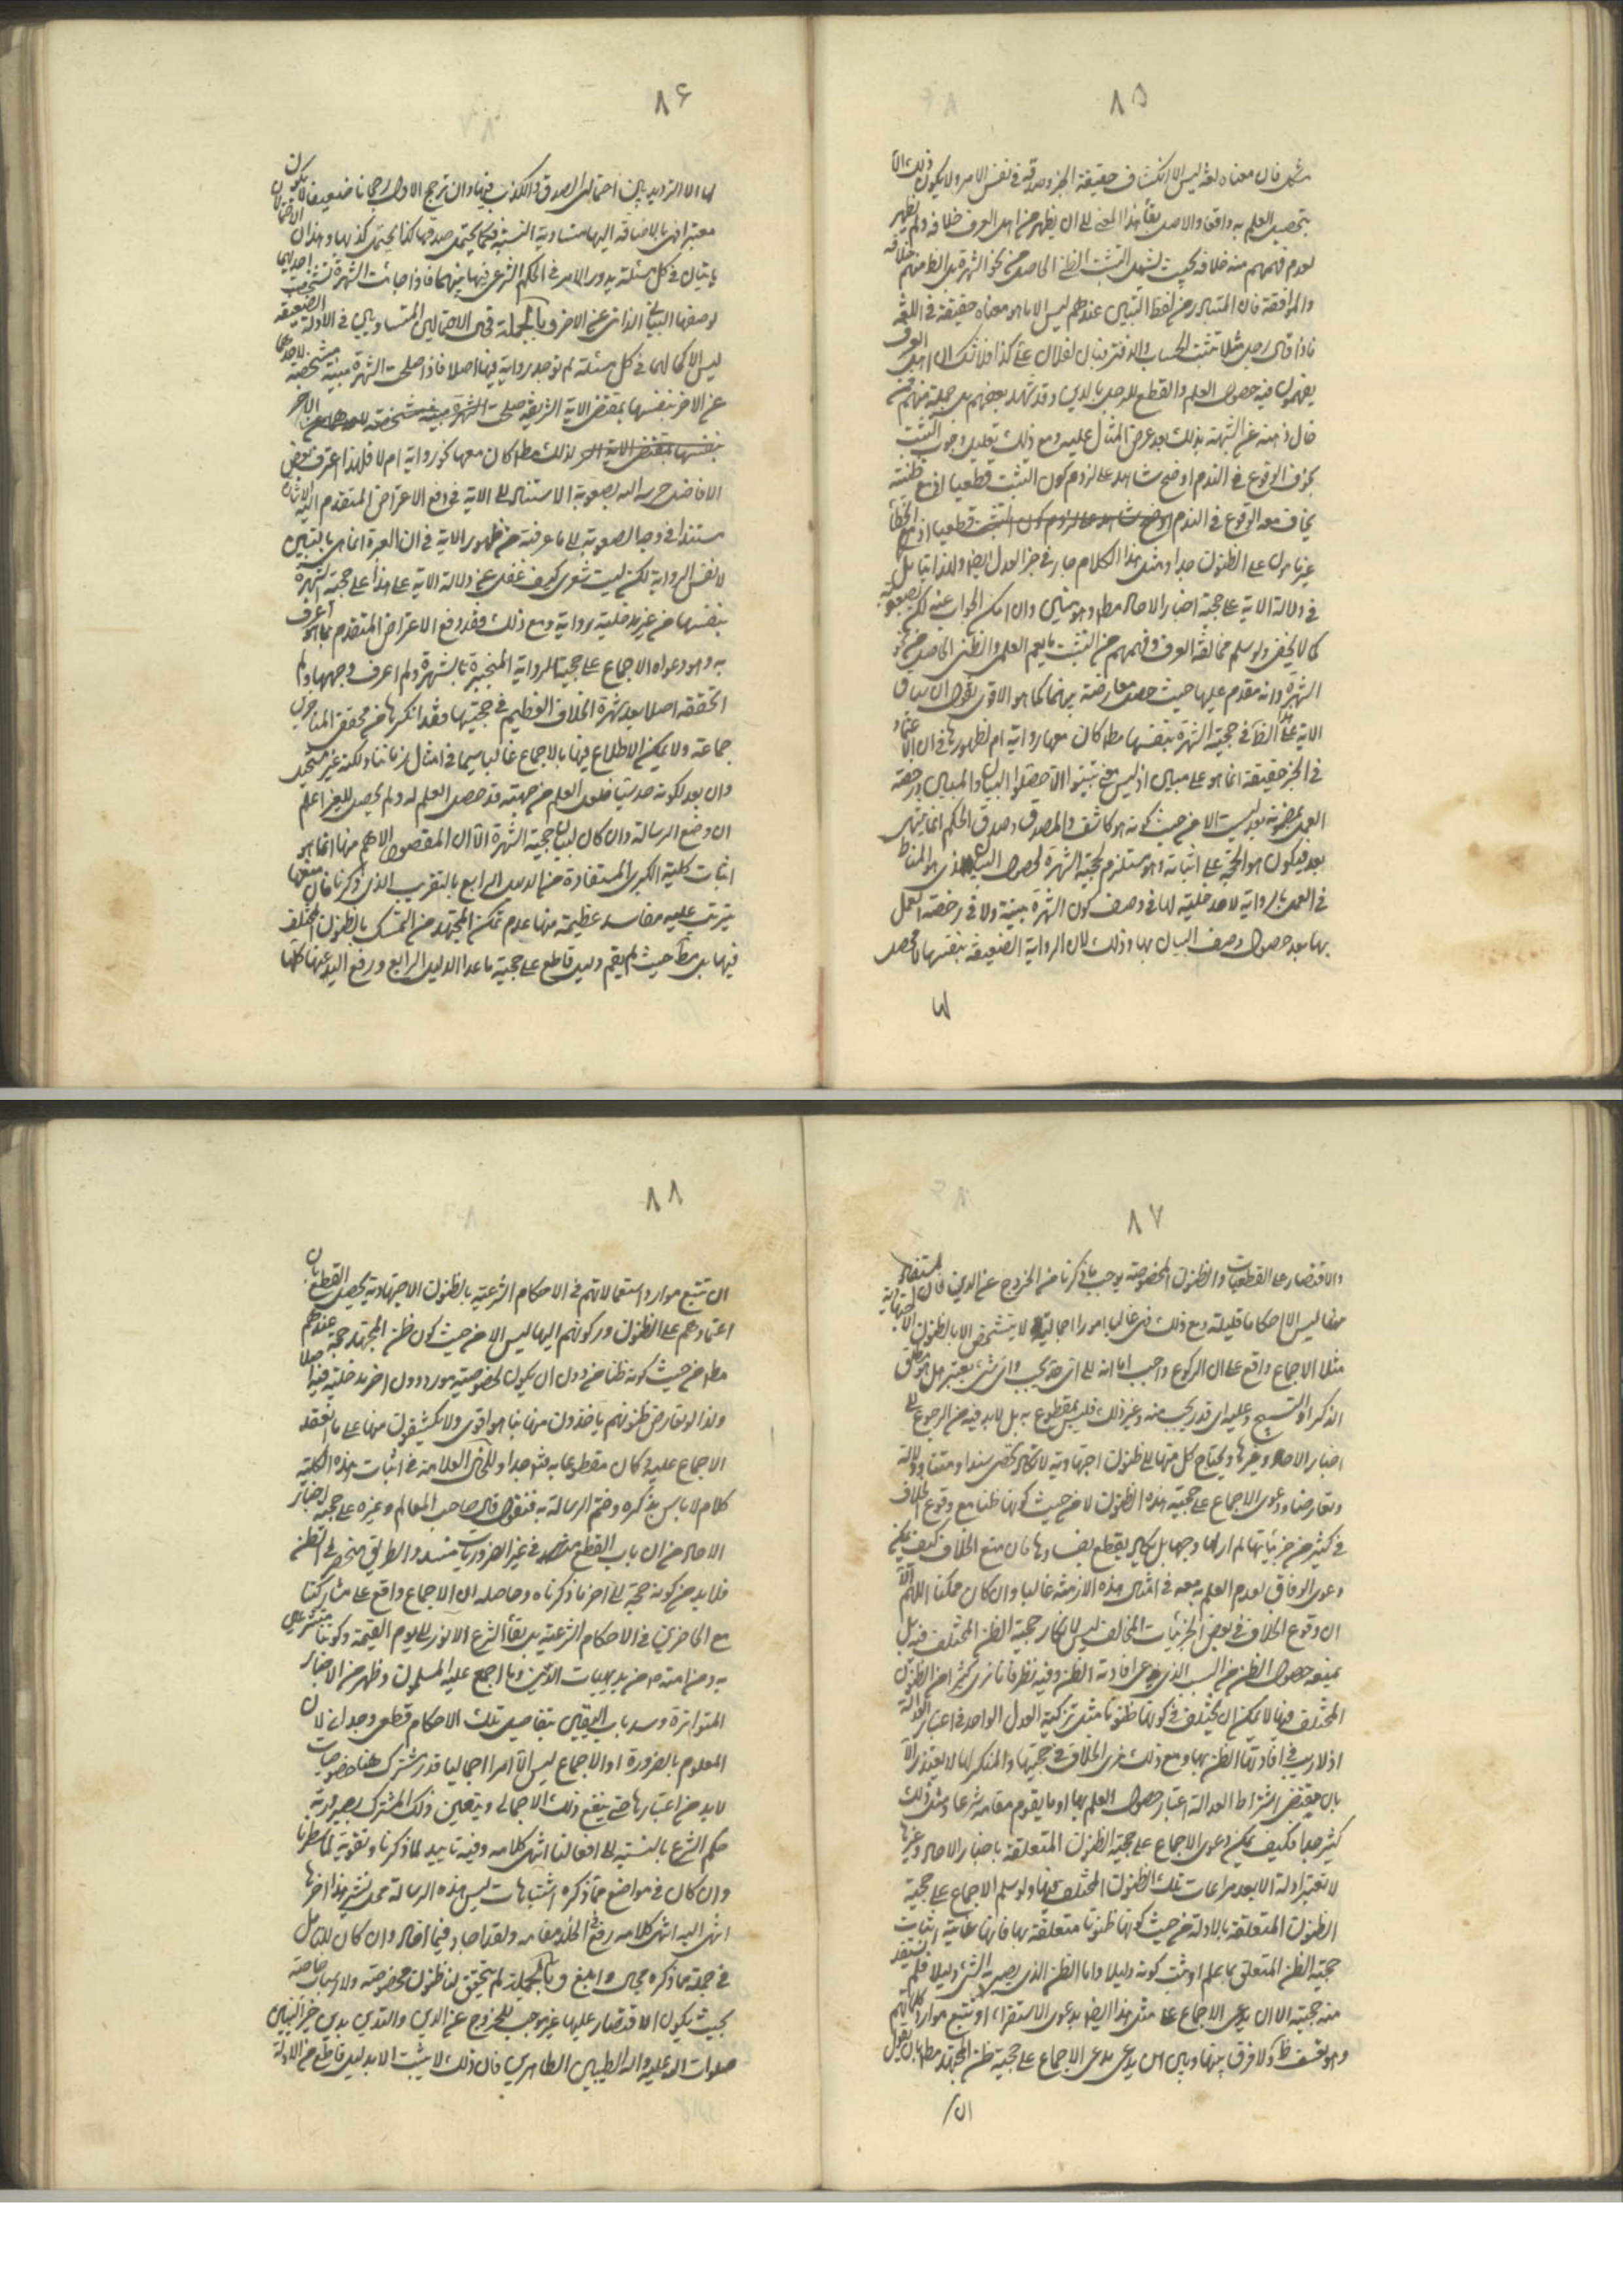 ٨٥
فان معناه لغة ليس الا انكشاف حقيقة الخبر وصدقه في نفس الامر ولا يكون ذلك الا
بتحصيل العلم به واقعا والاصل بقاء هذا المعنى الى ان يظهر من اهل العرف خلافه ولم يظهر
لعدم فهمهم منه خلافه بحيث يشمل التثبت الظني الحاصل من نحو الشهرة بل الظ منهم خلافه
والموافقة فان المتبادر من لفظ التبين عندهم ليس الا ما هو معناه حقيقة في اللغة
فاذا قال رجل مثلا تثبت الحساب والدفتر فان لفلان على كذا فلا شك ان اهل العرف
يفهمون منه حصول العلم والقطع للرجل بالدين وقد شهد بعضهم بل جملة منهم ممن
خال ذهنه عن الشبهة بذلك بعد عرض المثال عليه ومع ذلك تعليل وجوب التثبت
بخوف الوقوع في الندم اوضح شاهد على لزوم كون التثبت قطعيا اذ مع ظنيته
يخاف معه الوقوع في الندم اذ الخطأ
غير مامون على الظنون جدا ومثل هذا الكلام جار في خبر العدل ايضا ولذا يتامل
في دلالة الاية على حجية اخبار الاحاد مط وان امكن الجواب عنه لكن بصعوبة
كما لا يخفى ولو سلم مخالفة العرف وفهمهم من التثبت ما يعم العلمي والظني الحاصل من نحو
الشهرة وانه مقدم عليها حيث حصل معارضة بينهما كما هو الاقوى نقول ان سياق
الاية على هذا الظ في حجية الشهرة بنفسها مط كان معها رواية ام لا لظهورها في ان الاعتماد
في الخبر حقيقة انما هو على مبين اذ ليس معنى تبينوا الا حصلوا البيان والمبين ورخصة
العمل بمضمونه بعد ليست الا من حيث كونه هو كاشف والمصدق وصدق الحكم انما ينتهى
بعد فيكون هو الحجة على اثباته وهو مستلزم لحجية الشهرة لحصول البيان الذي هو المناط
في العمل بالرواية لا مدخلية لها في وصف كون الشهرة مبينة ولا في رخصة العمل
بها بعد حصول وصف البيان بها وذلك لان الرواية الضعيفة بنفسها لا محصل
لها
٨۶
لها الا الترديد بين احتمالي الصدق والكذب فيها وان ترجح الاول رجحانا ضعيفا لا يكون
معتبرا فهى بالاضافة اليها متساوية النسبة فكما يحتمل صدقها كذا يحتمل كذبها وهذان الاحتمالان
ياتيان في كل مسئلة يدور الامر في الحكم الشرعي فيها بينهما فاذا جائت الشهرة تشخصت احديهما
لوصفها البياني الذاتي عن الاخر وبالجملة فهى الاحتمالين المتساويين في الادلة الضعيفة
ليس الا كمالهما في كل مسئلة لم توجد رواية فيها اصلا فاذا صلحت الشهرة مبينة مشخصة لاحدهما
عن الاخر بنفسها بمقتضى الاية الشريفة صلحت
لذلك مط كان معها نحو رواية ام لا فلهذا اعترف بعض
الافاضل حرسه الله بصعوبة الاستناد الى الاية في دفع الاعتراض المتقدم اليه الاشارة
مستندا في وجه الصعوبة الى ما عرفته من ظهور الاية في ان العبرة انما هي بالتبين
لا نفس الرواية لكن ليت شعري كيف غفل عن دلالة الاية على هذا على حجية الشهرة
بنفسها من غير مدخلية رواية ومع ذلك فقد دفع الاعتراض المتقدم بما هو اعرف
به وهو دعواه الاجماع على حجية الرواية المنجبرة بالشهرة ولم اعرف وجهها ولم
اتحققه اصلا بعد شهرة الخلاف العظيم في حجيتها فقد انكرها من محققي المتاخرين
جماعة ولا يمكن الاطلاع فيها بالاجماع غالبا سيما في امثال زماننا ولكنه غير مستحيل
وان بعد لكونه حدسيا فلعل العلم من جهته قد حصل العلم له ولم يحصل للغير اعلم
ان وضع الرسالة وان كان لبيان حجية الشهرة الا ان المقصود الاهم منها انما هو
اثبات كلية الكبرى المستفادة من الدليل الرابع بالتقريب الذي ذكرنا فان منعها
يترتب عليه مفاسد عظيمة منها عدم تمكن المجتهد من التمسك بالظنون المختلف
فيها بل مط حيث لم يقم دليل قاطع على حجية ما عدا الدليل الرابع ورفع اليد عنها كلها
٨٧
والاقتصار على القطعيات والظنون المخصوصة يوجب ما ذكرنا من الخروج عن الدين فان المستفاد
منها ليس الا احكاما قليلة ومع ذلك فهى غالبا امورا اجمالية لا يتشخص الا بالظنون الاجتهادية
مثلا الاجماع واقع على ان الركوع واجب اما انه الى اى حد يجب واى شيء يعتبر هل هو مطلق
الذكر او التسبيح وعليه اى قدر يجب منه وغير ذلك فليس بمقطوع به بل لا بد فيه من الرجوع الى
اخبار الاحاد وغيرها ويحتاج كل منها الى ظنون اجتهادية لا تكاد تحصى سندا ومتنا ودلالة
وتعارضا ودعوى الاجماع على حجية هذه الظنون لا من حيث كونها ظنا مع وقوع الخلاف
في كثير من جزئياتها لم ار لها وجها بل يكاد يقطع بفسادها فان منع الخلاف كيف يمكن
دعوى الوفاق لعدم العلم به معه في امثال هذه الازمنة غالبا وان كان ممكنا اللهم الا
ان وقوع الخلاف في بعض الجزئيات المخالف ليس لانكار حجية الظن المختلف فيه بل
لمنع حصول الظن من السبب الذي يدعى افادته الظن وفيه نظر فانا نرى كثيرا من الظنون
المختلف فيها لا يمكن ان يختلف في كونها ظنونا مثل تزكية العدل الواحد في اعتبار العدالة
اذ لا ريب في افادتها الظن بها ومع ذلك نرى الخلاف في حجيتها والمنكر لها لا يعتذر الا
بان مقتضى اشتراط العدالة اعتبار حصول العلم بها او ما يقوم مقامه شرعا ومثل ذلك
كثير جدا فكيف يمكن دعوى الاجماع على حجية الظنون المتعلقة باخبار الاحاد وغيرها
لا تعتبر ادلة الا بعد مراعات تلك الظنون المختلف فيها ولو سلم الاجماع على حجية
الظنون المتعلقة بالادلة من حيث كونها ظنونا متعلقة بها فانها غاية اثبات
حجية الظن المتعلق بما علم او ثبت كونه دليلا واما الظن الذي يصير به الشيء دليلا فلم يستفد
منه حجيته الا ان يدعى الاجماع على مثل هذا ايضا بدعوى الاستقراء او تتبع موارد كلماتهم
وهو تعسف ظ ولا فرق بينها وبين من يدعى الاجماع على حجية ظن المجتهد مط بان يقول
ان
٨٨
ان تتبع موارد استعمالاتهم في الاحكام الشرعية بالظنون الاجتهادية يحصل القطع بان
اعتمادهم على الظنون وركونهم اليها ليس الا من حيث كون ظن المجتهد حجة عندهم
مط من حيث كونه ظنا من دون ان يكون لخصوصية مورد دون اخر مدخلية فيه اصلا
ولذا لو تعارض ظنونهم ياخذون منها بما هو اقوى ولا يكتفون منها على ما انعقد
الاجماع عليه وكان مقطوعا به وللخال العلامة في اثبات هذه الكلية
كلام لا باس بذكره وختم الرسالة به فنقول قال صاحب المعالم وغيره على حجية اخبار
الاحاد من ان باب القطع في غير الضروريات منسد والطريق منحصر في الظن
فلا بد من كونه حجة الى اخر ما ذكرناه وحاصله ان الاجماع واقع على مشاركتنا
مع الحاضرين في الاحكام الشرعية بل بقاء الشرع الانور الى يوم القيمة وكوننا متشرعين
به ومن امته ص من بديهيات الدين وما اجمع عليه المسلمون وظهر من الاخبار
المتواترة وسد باب اليقين بتفاصيل تلك الاحكام قطعي وجداني لان
المعلوم بالضرورة او الاجماع ليس الا امرا اجماليا قدر مشترك هنا خصوصيات
لا بد من اعتبارها حتى ينفع ذلك الاجمالي ويتعين ذلك المشترك بصيرورته
حكم الشرع بالنسبة الى افعالنا انتهى كلامه وفيه تاييد لما ذكرنا وتقوية لما سطرنا
وان كان في مواضع مما ذكره اشتباهات ليس هذه الرسالة محل نشرها هذا اخر ما
انتهى اليه انتهى كلامه رفع في الخلد مقامه ولقد اجاد فيما افاد وان كان للتامل
في جملة مما ذكره مجال واسع وبالجملة لم يتحقق لنا ظنون مخصوصة ولا اسباب خاصة
بحيث يكون الاقتصار عليها غير موجب للخروج عن الدين والتدين بدين خير النبيين
صلوات الله عليه واله الطيبين الطاهرين فان ذلك لا يثبت الا بدليل قاطع من الادلة